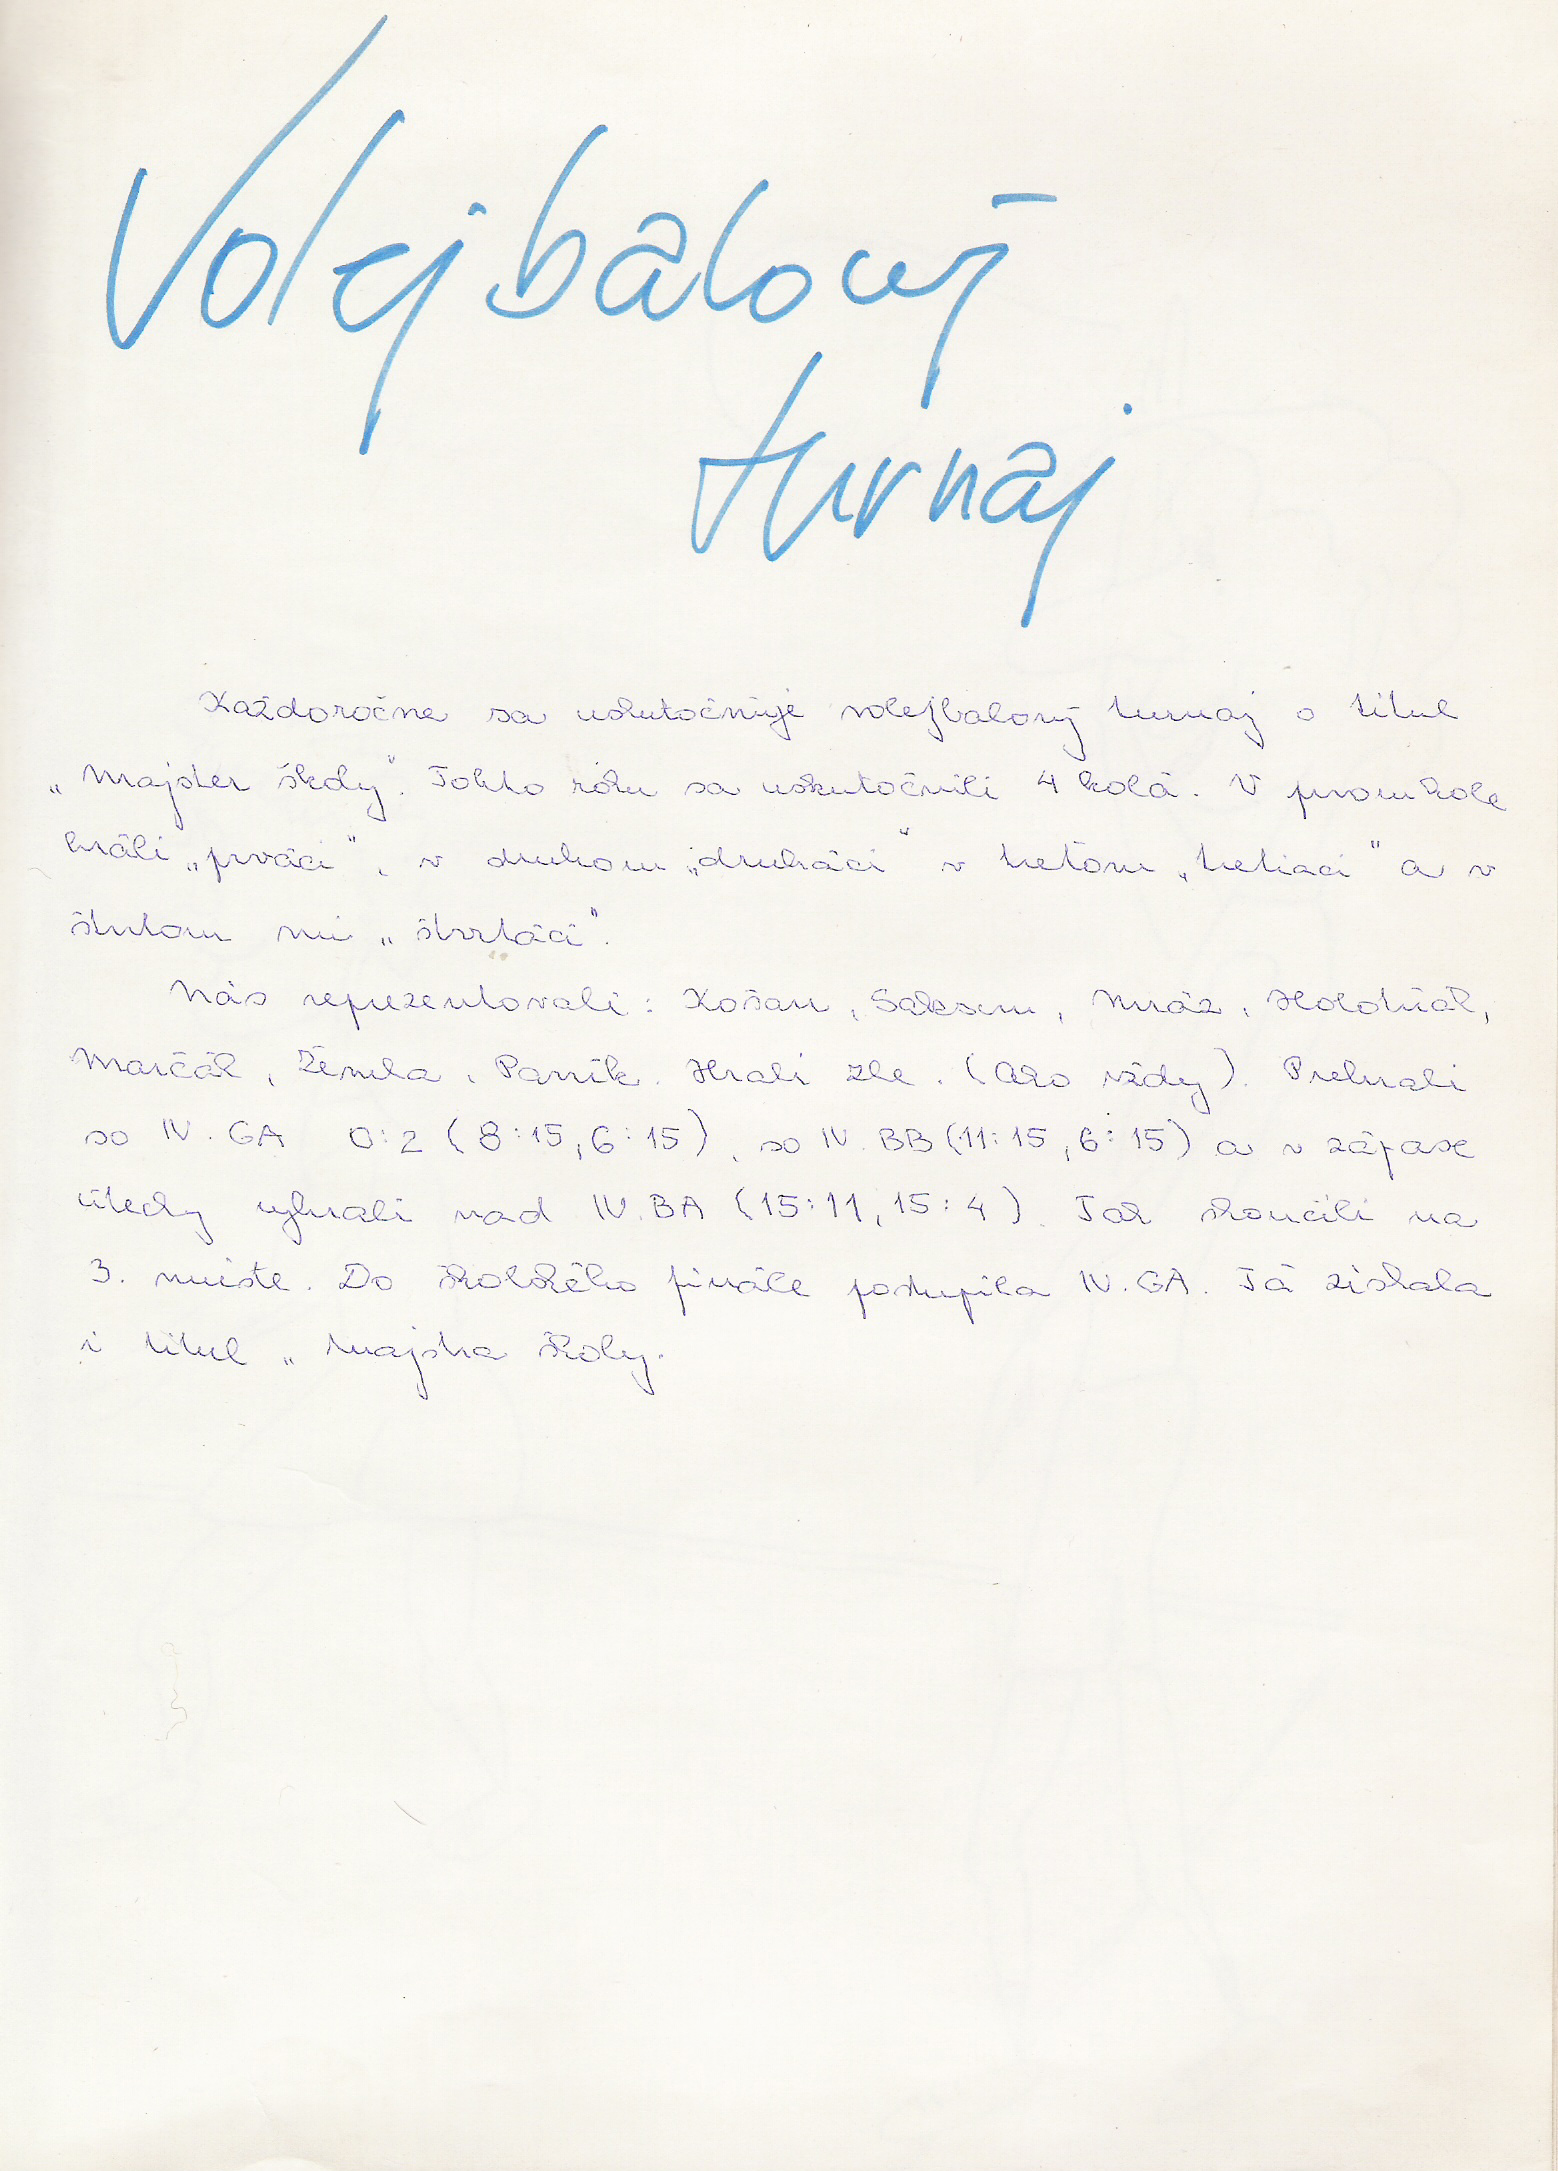 Volejbalový
turnaj
Každoročne sa uskutočňuje volejbalový turnaj o titul
„Majster školy". Tohto roku sa uskutočnili 4 kolá. V prvom kole
hráli „prváci", v druhom „druháci" v treťom „tretiaci" a v
štvrtom my „štvrtáci".
Nás reprezentovali: Košan, Saksun, Mráz, Holdňák,
Marčák, Žemla, Parník. Hrali zle. (Ako vždy). Prehrali
so IV. GA 0:2 (8:15, 6:15), so IV. BB (11:15, 6:15) a v zápase
útechy vyhrali nad IV. BA (15:11, 15:4). Tak skončili na
3. mieste. Do školského finále postúpila IV. GA. Tá získala
i titul „Majstra školy.